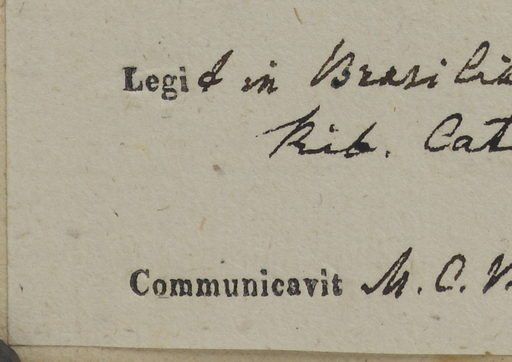 Legit in Brasilia
Rib. Cat
Communicavit M. C.